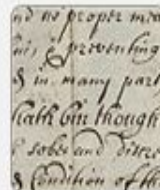 nd no proper mea
preventing
& in many part
hath bin though
sober and discre
& Condition of th